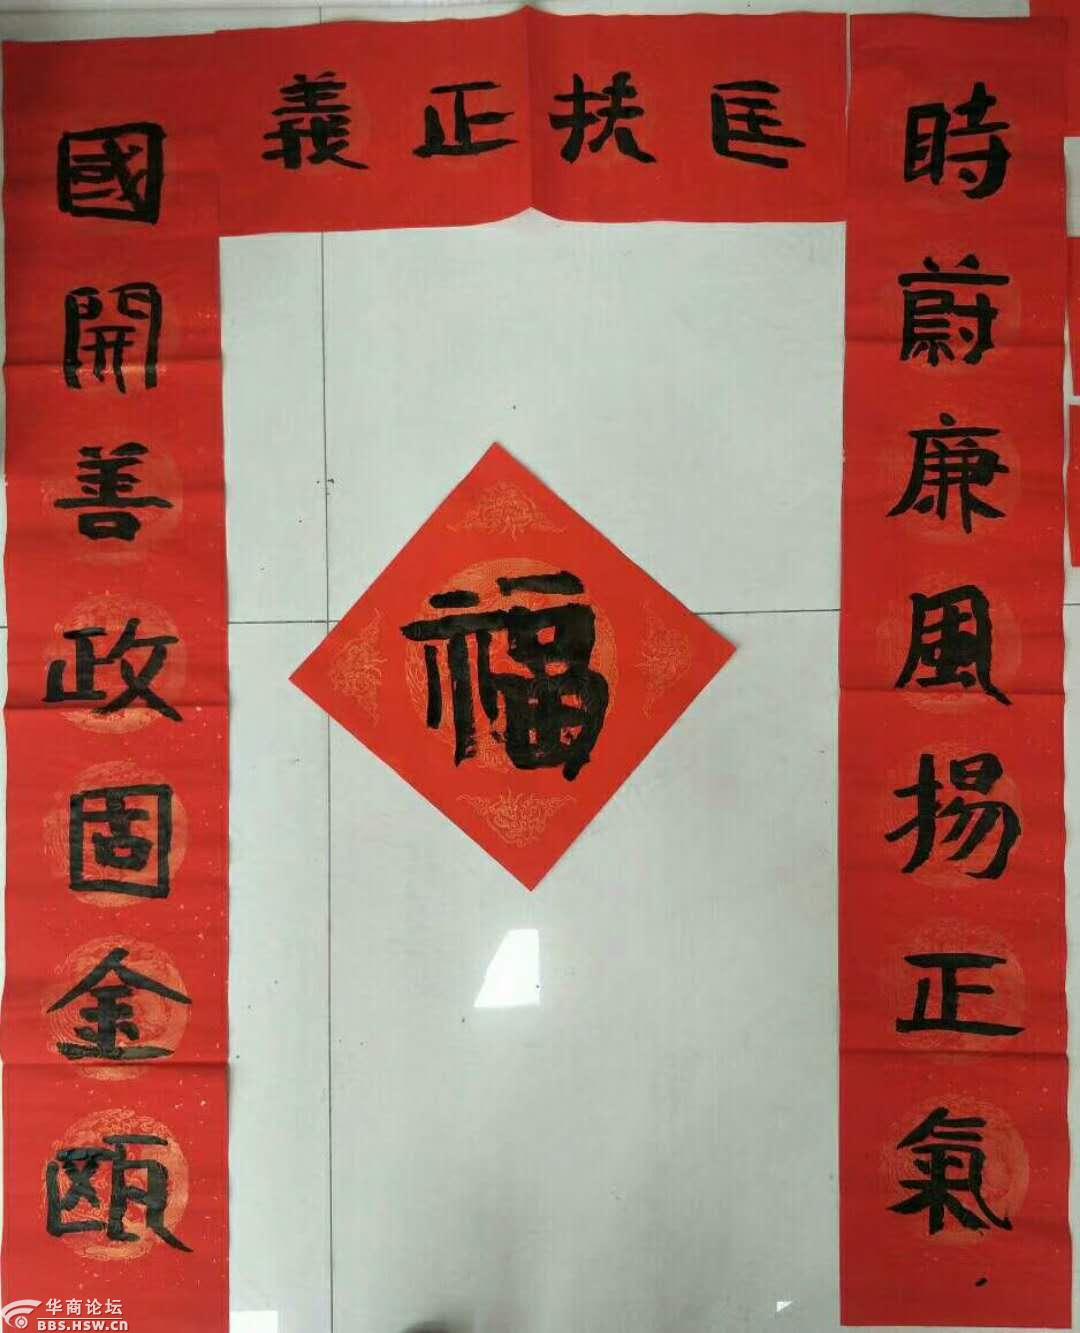 時蔚廉風揚正氣
國開善政固金甌
匡扶正義
福
华商论坛
BBS.HSW.CN